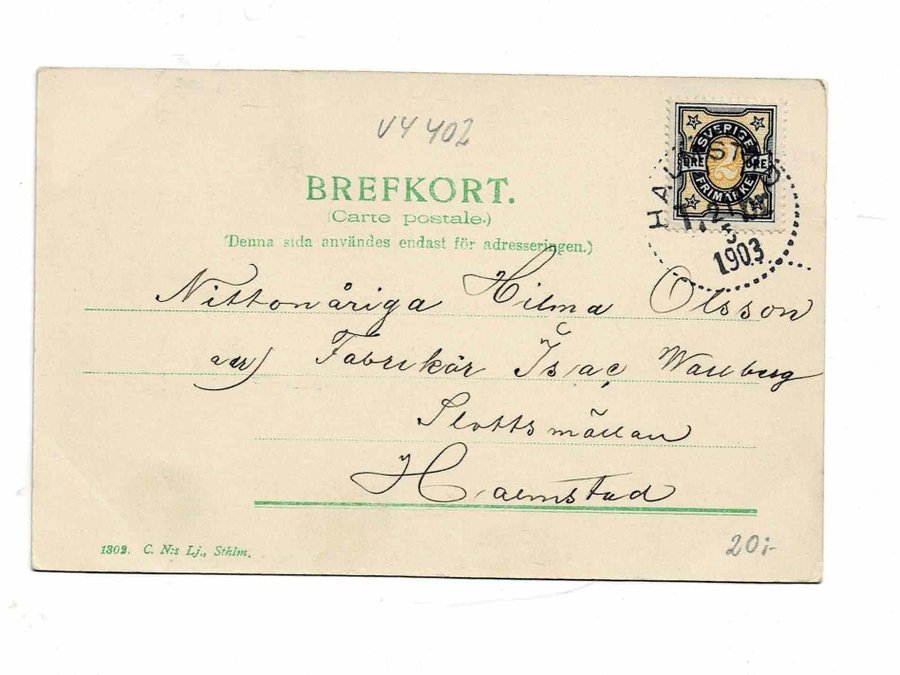 V4 402
SVERIGE
2
ÖRE ÖRE
FRIMÄRKE
HALMSTAD
1903
BREFKORT.
(Carte postale.)
(Denna sida användes endast för adresseringen.)
Nittonåriga Hilma Olsson
adr/ Fabrikör Isac Wallberg
Slottsmöllan
Halmstad
1302. C. N:s Lj., Sthlm.
20:-